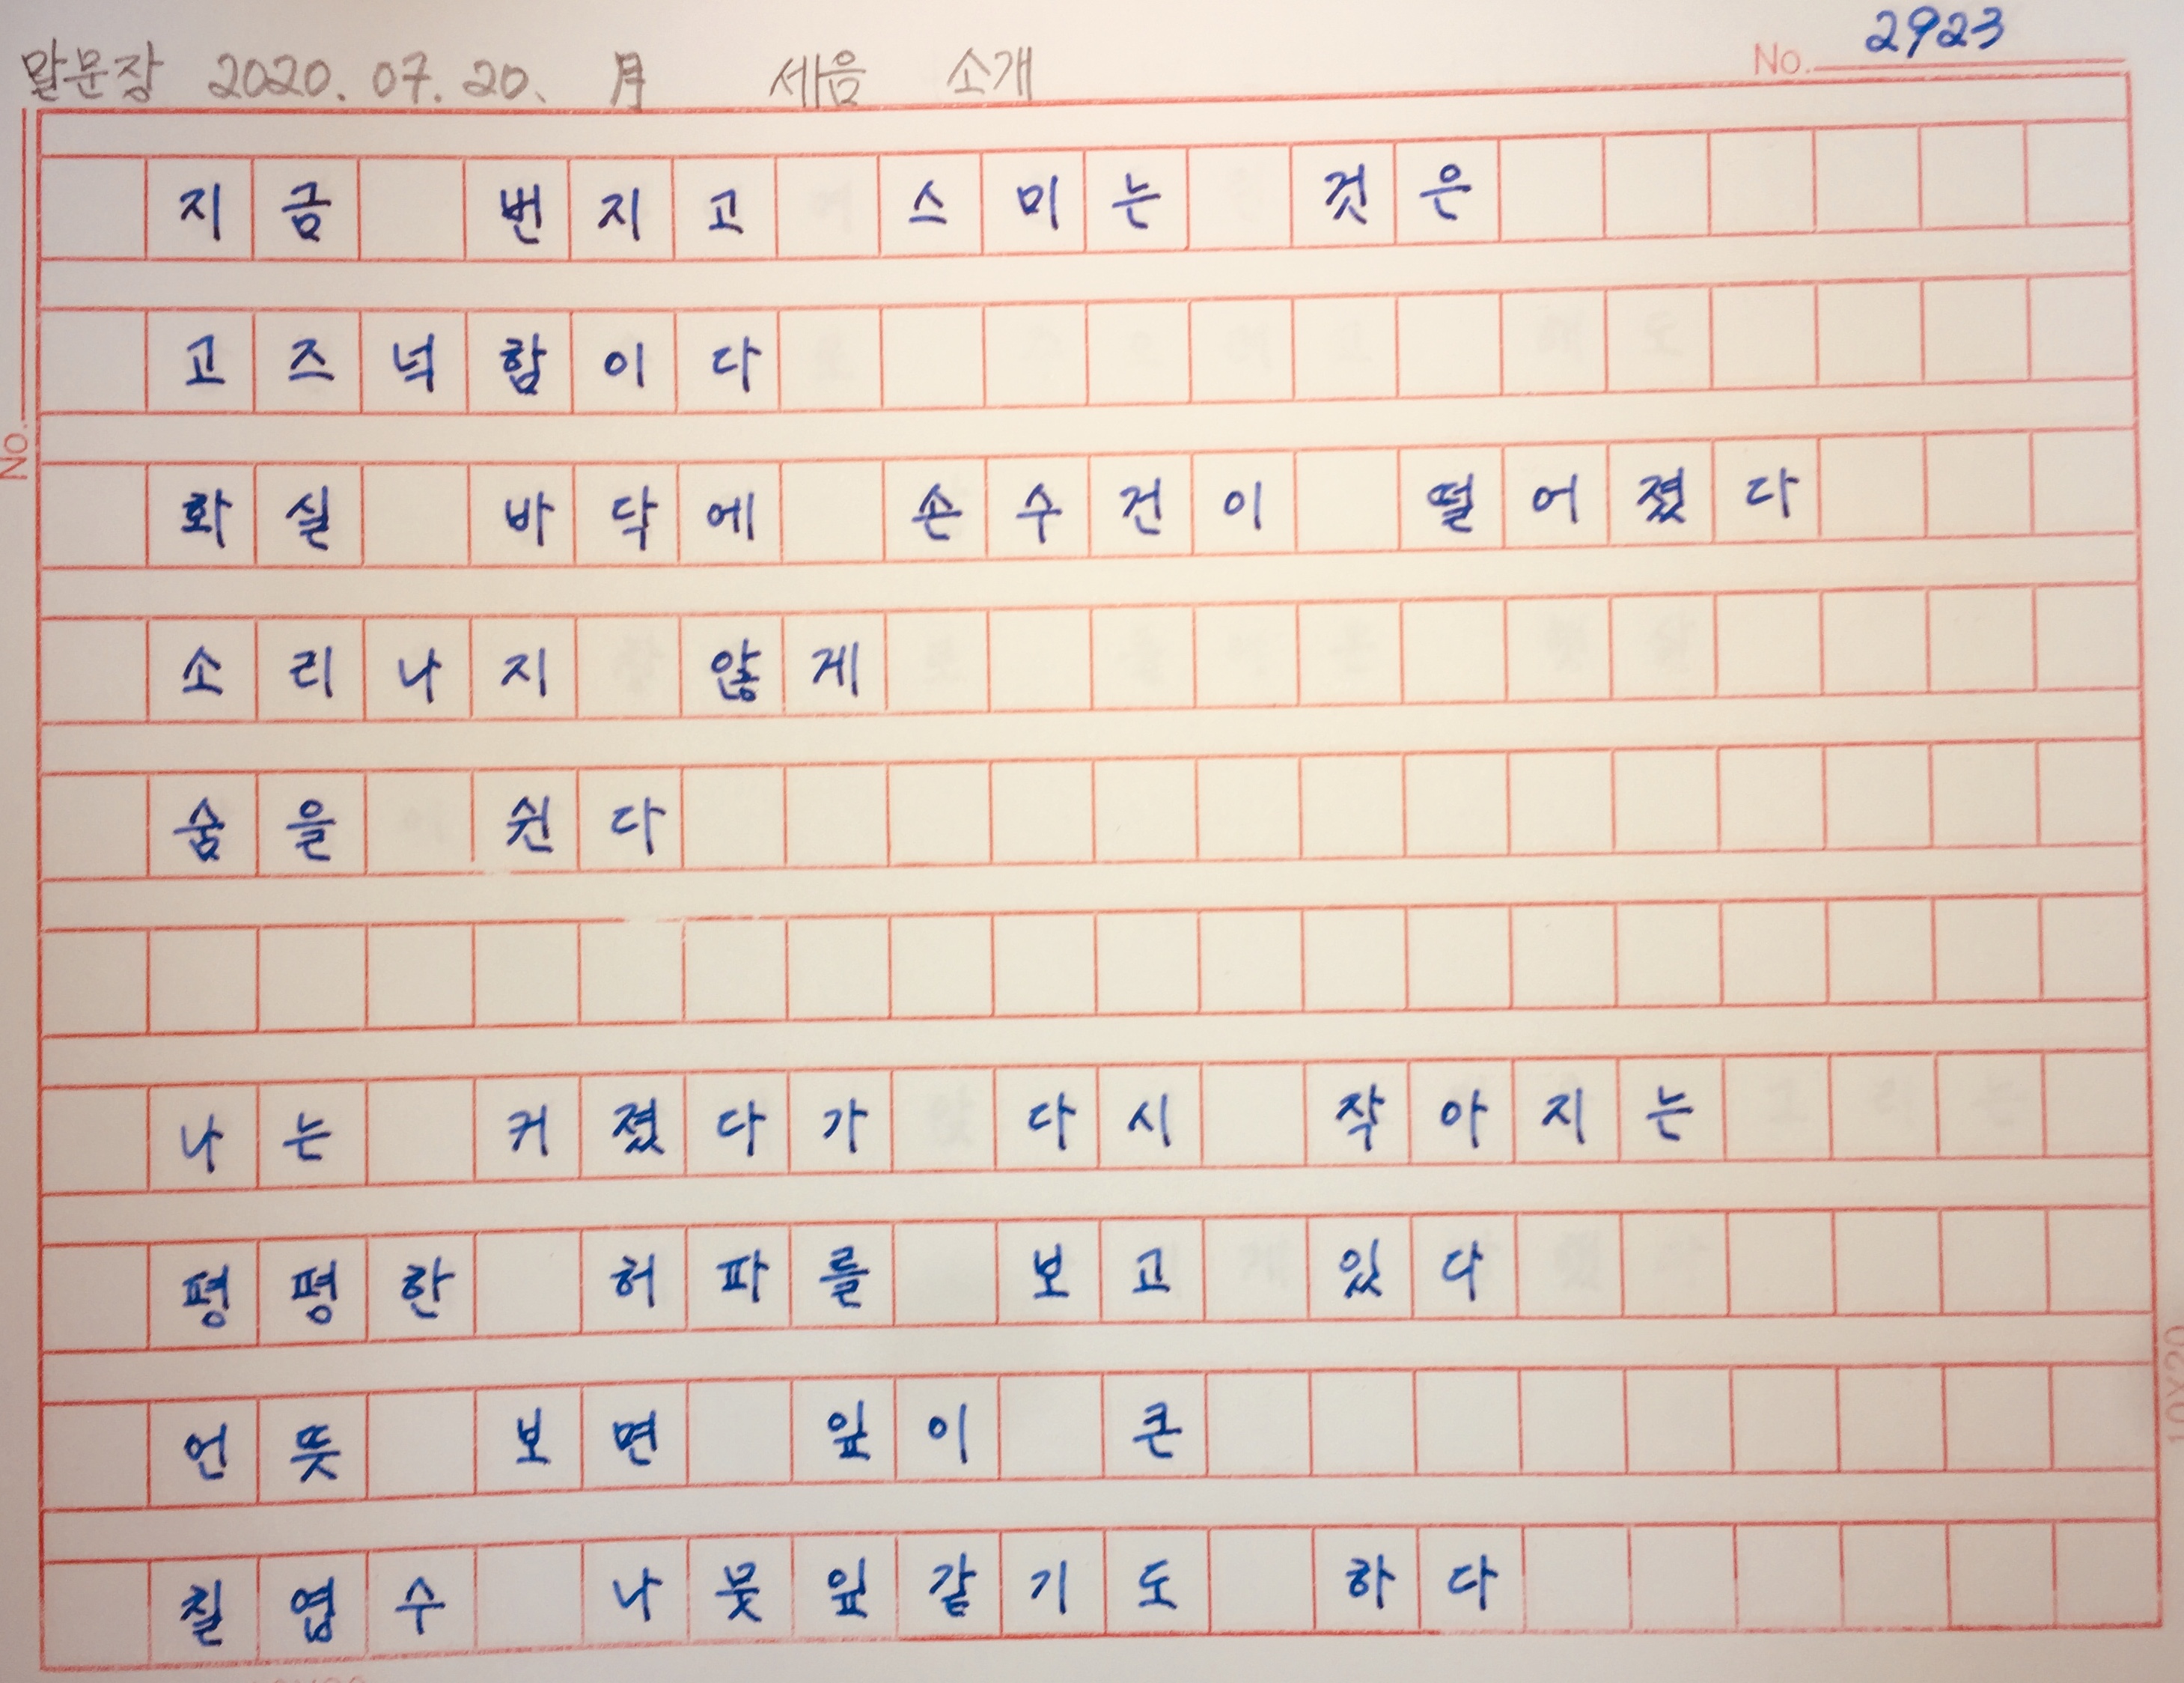 말문장 2020. 07. 20. 月 세음 소개
No. 2923
지금 번지고 스미는 것은
고즈넉함이다
화실 바닥에 손수건이 떨어졌다
No.
소리나지 않게
숨을 쉰다
나는 커졌다가 다시 작아지는
평평한 허파를 보고 있다
언뜻 보면 잎이 큰
칠엽수 나뭇잎같기도 하다
10X20